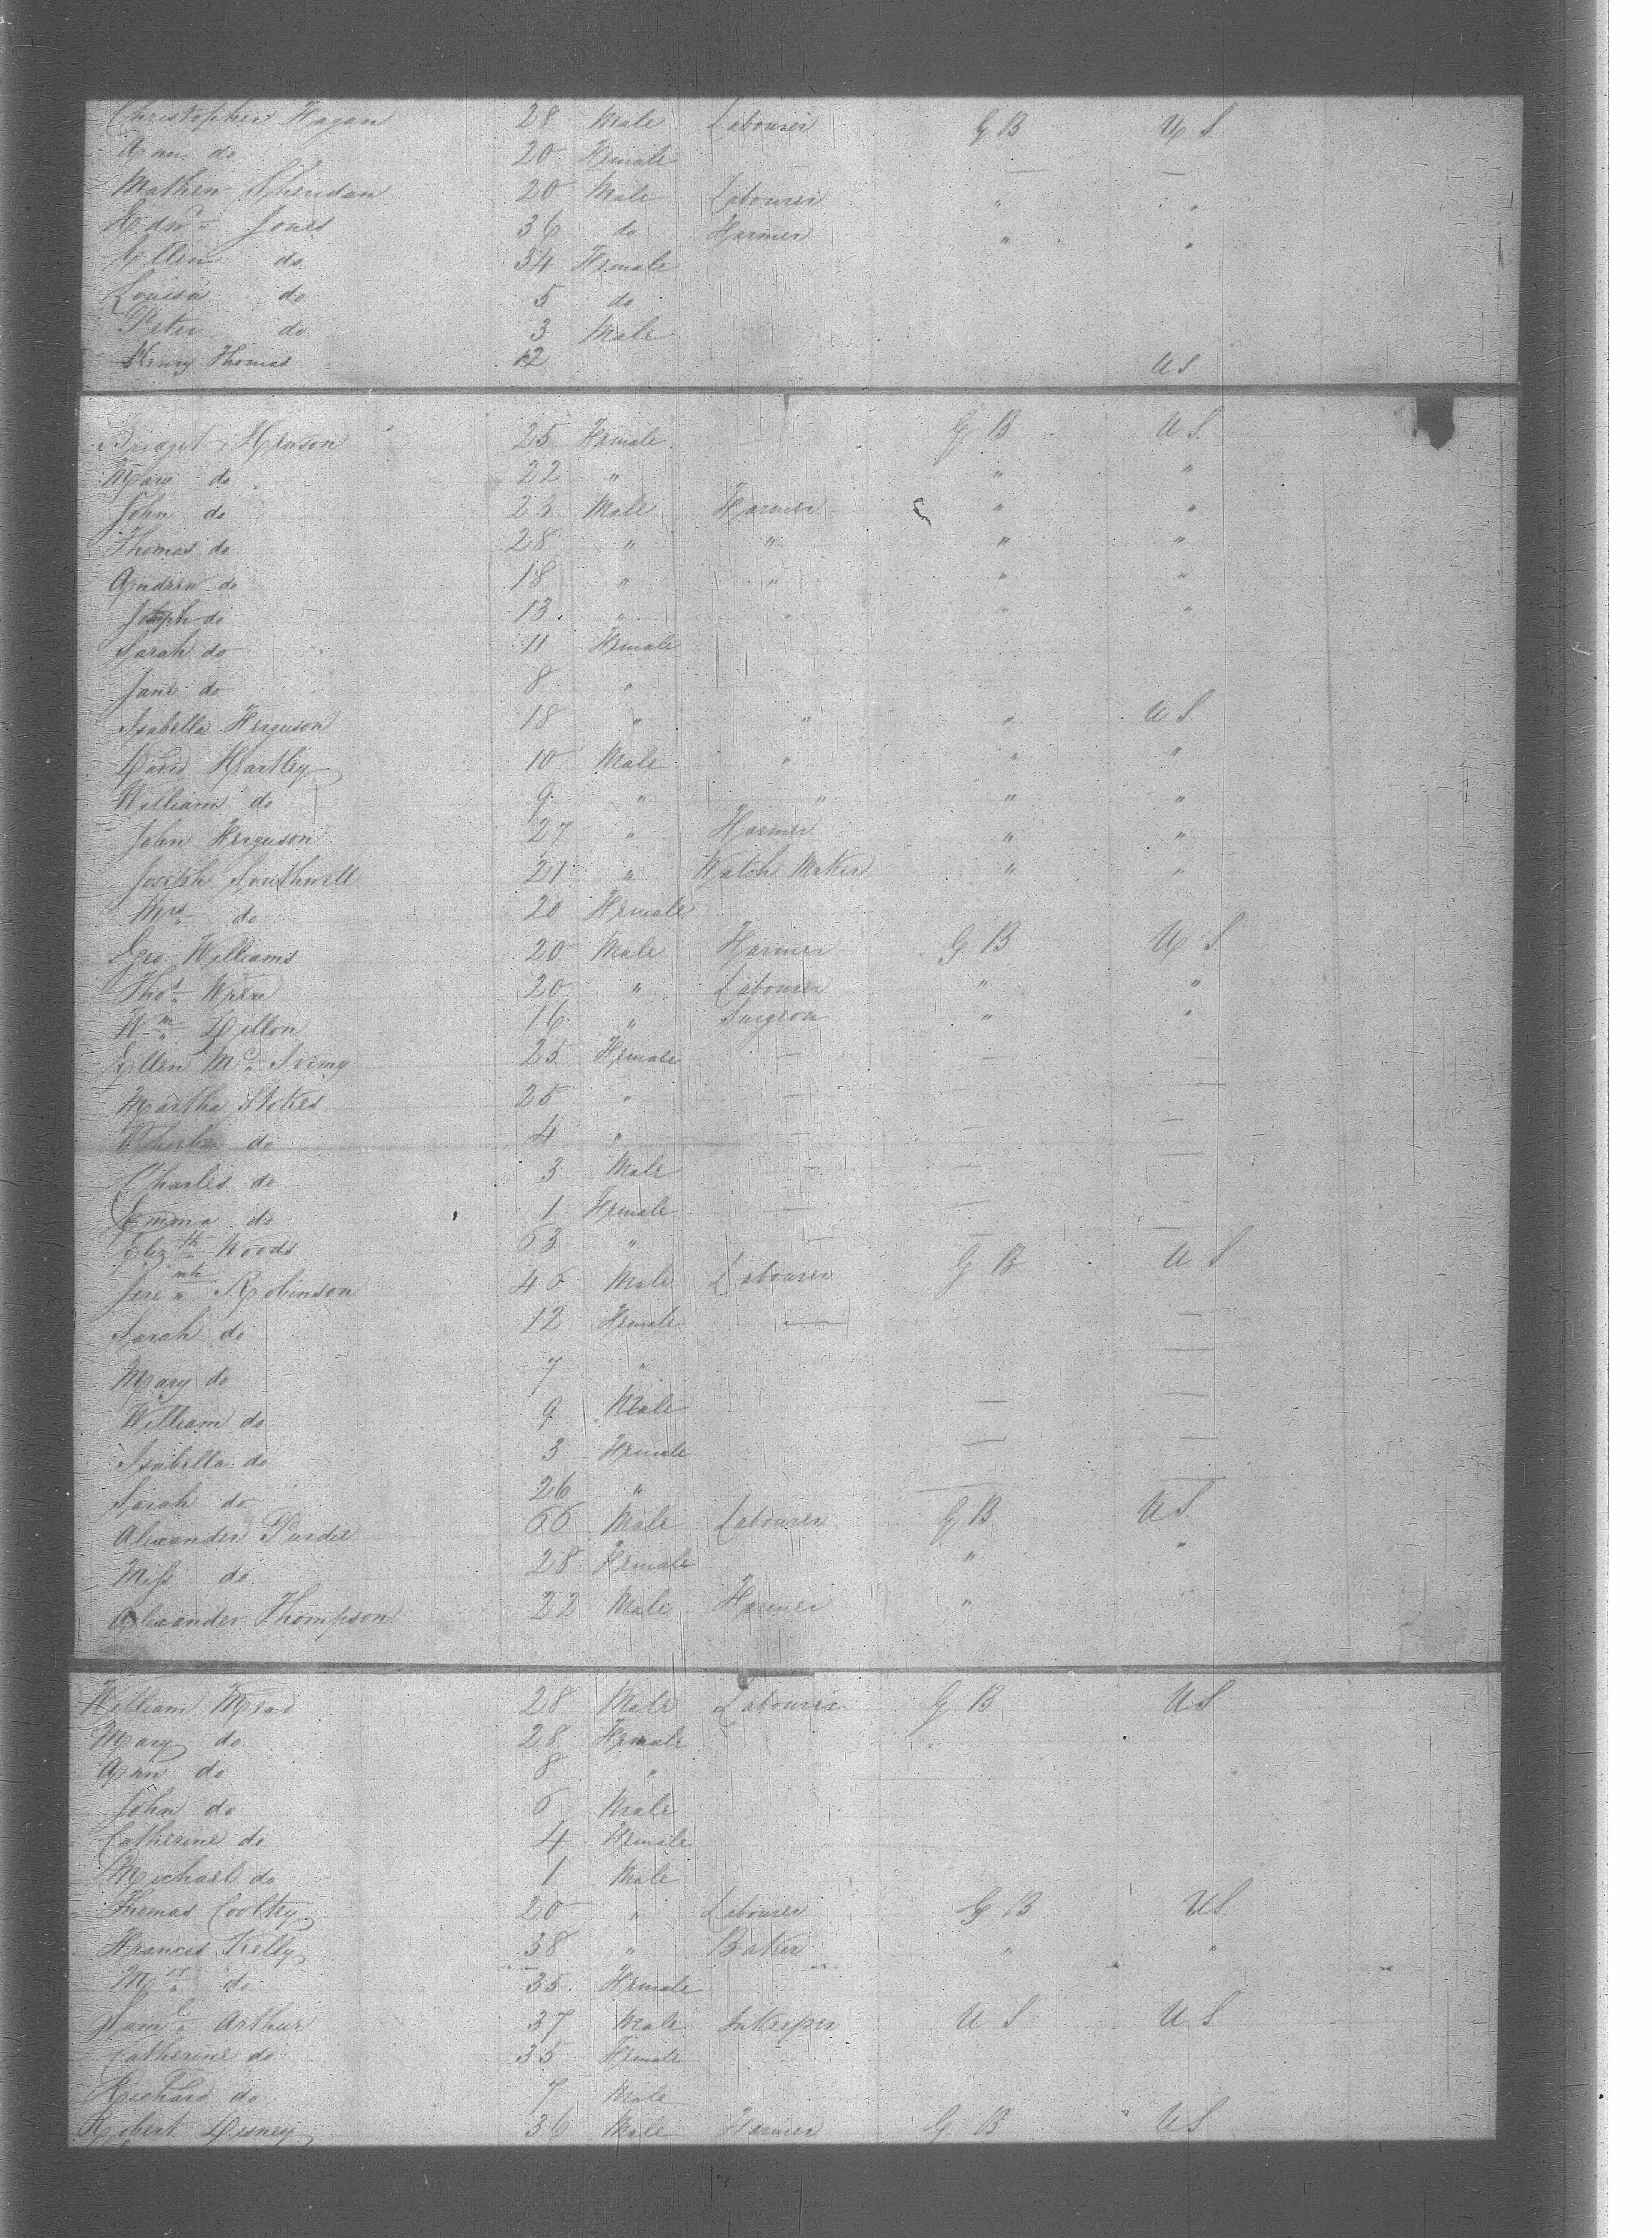 Christopher Hagan 28 Male Labourer G B U S
Ann do 20 Female — — —
Mathew Sheridan 20 Male Labourer " "
Edwd Jones 36 do Farmer " "
Ellen do 34 Female
Louisa do 5 do
Peter do 3 Male
Henry Thomas 12 U S
Bridget Hewson 25 Female G B U S
Mary do 22 " " "
John do 23 Male Farmer " "
Thomas do 28 " " " "
Andrew do 18 " " " "
Joseph do 13 " " " "
Sarah do 11 Female
Jane do 8 "
Isabella Ferguson 18 " " " U S
David Hartley 10 Male " " "
William do 9 " " " "
John Ferguson 27 " Farmer " "
Joseph Southwell 21 " Watch Maker " "
Mrs do 20 Female
Geo. Williams 20 Male Farmer G B U S
Thos Wren 20 " Labourer " "
Wm Dilton 16 " Surgeon " "
Ellen Mc 25 Female — — —
Martha Stokes 25 " — — —
Phoebe do 4 " — — —
Charles do 3 Male — — —
Emma do 1 Female — — —
Elizth Woods 63 " — — —
Jeremh Robinson 46 Male Labourer G B U S
Sarah do 12 Female — —
Mary do 7 " —
William do 9 Male — —
Isabella do 3 Female — —
Sarah do 26 " — —
Alexander Purdie 66 Male Labourer G B U S
Miss do 28 Female " "
Alexander Thompson 22 Male Farmer " "
William Mead 28 Male Labourer G B U S
Mary do 28 Female
Ann do 8 "
John do 6 Male
Catherine do 4 Female
Michael do 1 Male
Thomas 20 " Labourer G B U S
Francis Kelly 38 " Baker " "
Mrs do 35 Female
Saml Arthur 37 Male Inkeeper U S U S
Catherine do 35 Female
Richard do 7 Male
Robert Disney 36 Male Farmer G B U S